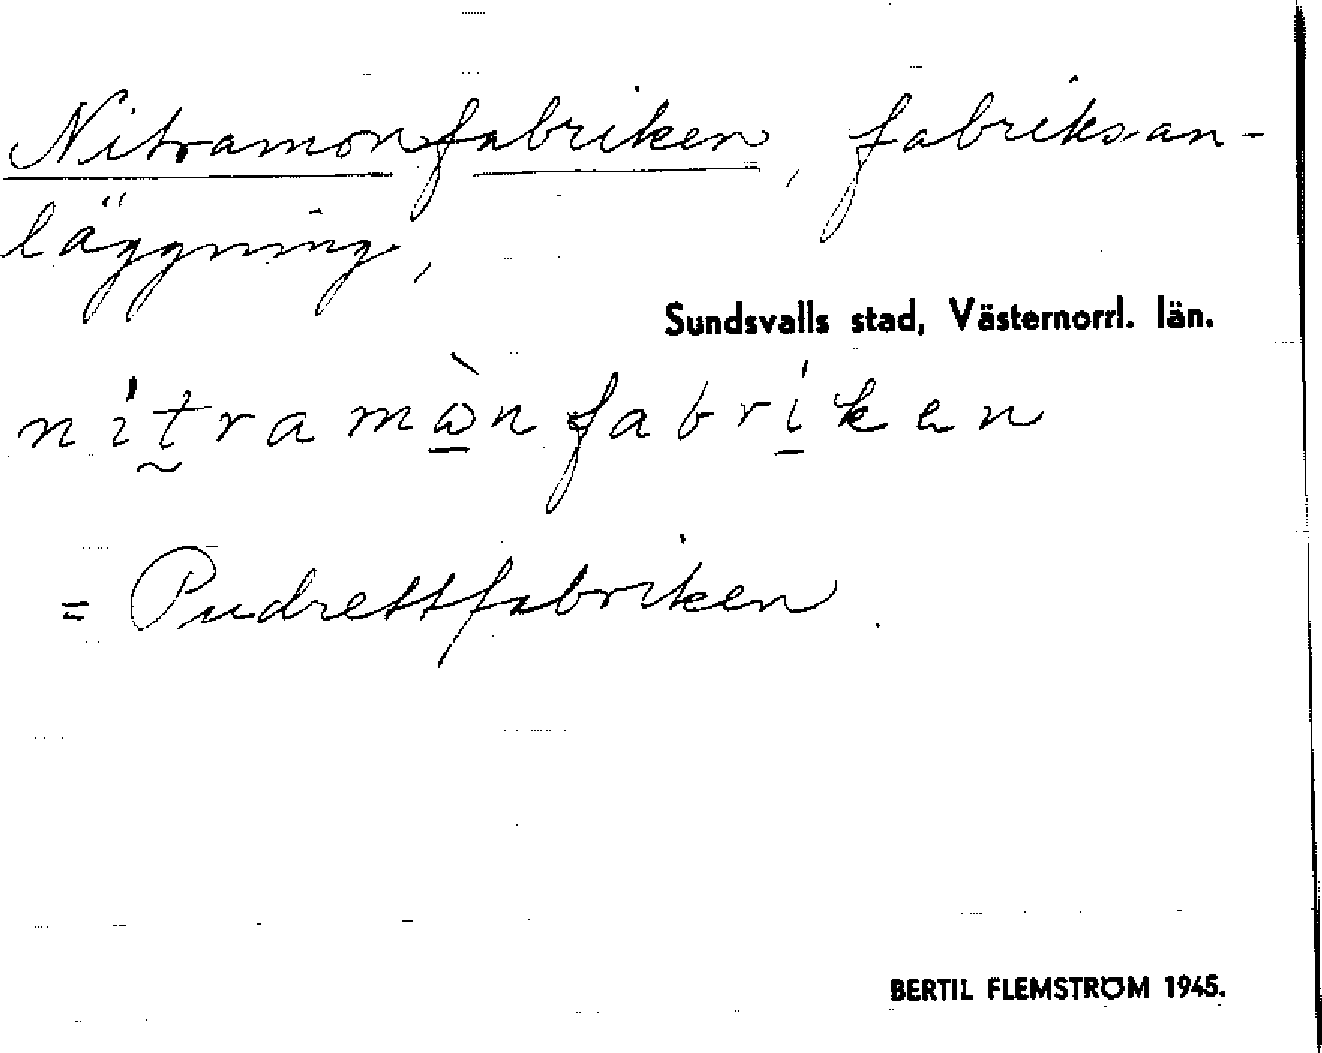 Nitramonfabriken, fabriksan-
läggning,
Sundsvalls stad, Västernorrl. län.
nitramὼ̲nfabri̲ken
= Pudrettfabriken.
BERTIL FLEMSTRÖM 1945.